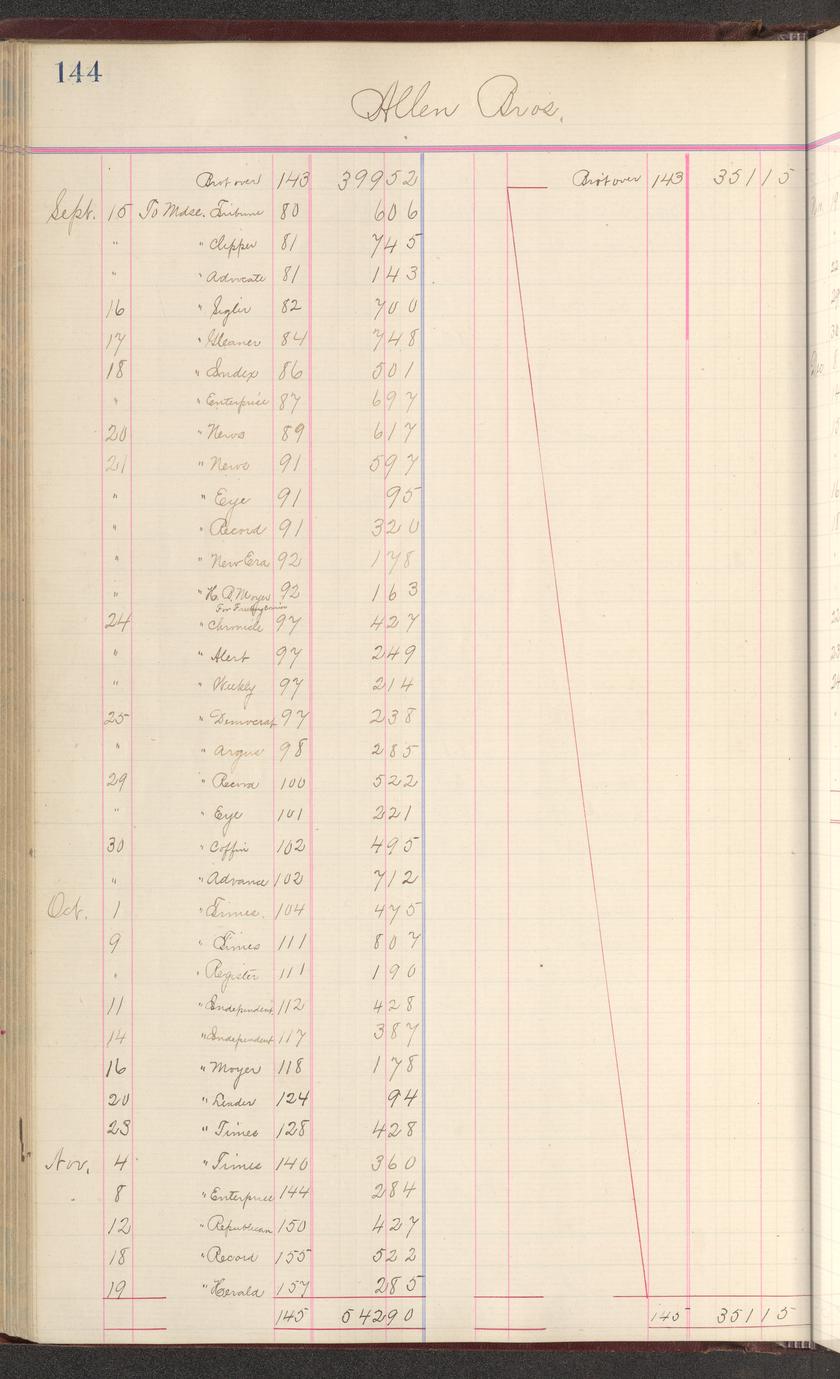 144
Allen Bros.
Brot over 143 399 52 Brot over 143 351 15
Sept. 15 To Mdse. Tribune 80 6 06
" " Clipper 81 7 45
" " Advocate 81 1 43
16 " Sigler 82 7 00
17 " Gleaner 84 7 48
18 " Index 86 5 01
" " Enterprise 87 6 97
20 " News 89 6 17
21 " News 91 5 97
" " Eye 91 95
" " Record 91 3 20
" " New Era 92 1 78
" " H. A. Moyer 92 1 63
For
24 " Chronicle 97 4 27
" " Alert 97 2 49
" " Weekly 97 2 14
25 " Democrat 97 2 38
" " Argus 98 2 85
29 " Record 100 5 22
" " Eye 101 2 21
30 " Coffin 102 4 95
" " Advance 102 7 12
Oct. 1 " Times. 104 4 75
9 " Times 111 8 07
" " Register 111 1 90
11 " Independent 112 4 28
14 " Independent 117 3 87
16 " Moyer 118 1 78
20 " Leader 124 94
23 " Times 128 4 28
Nov. 4 " Times 140 3 60
8 " Enterprise 144 2 84
12 " Republican 150 4 27
18 " Record 155 5 22
19 " Herald 157 2 85
145 542 90 145 351 15